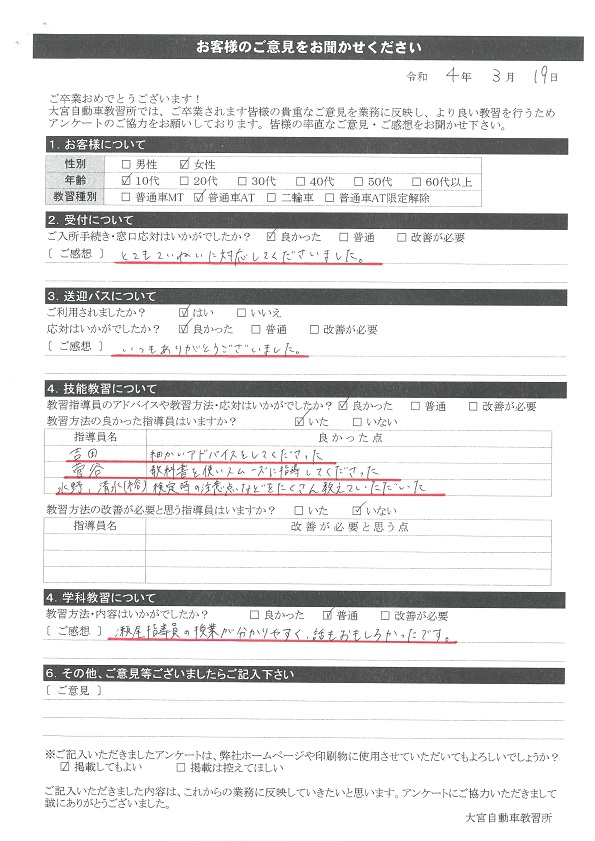 お客様のご意見をお聞かせください
令和 4年 3月 19日
ご卒業おめでとうございます！
大宮自動車教習所では、ご卒業されます皆様の貴重なご意見を業務に反映し、より良い教習を行うため
アンケートのご協力をお願いしております。皆様の率直なご意見・ご感想をお聞かせ下さい。
1. お客様について
性別 □ 男性 ☑ 女性
年齢 ☑ 10代 □ 20代 □ 30代 □ 40代 □ 50代 □ 60代以上
教習種別 □ 普通車MT ☑ 普通車AT □ 二輪車 □ 普通車AT限定解除
2. 受付について
ご入所手続き・窓口応対はいかがでしたか？ ☑ 良かった □ 普通 □ 改善が必要
〔 ご感想 〕 とてもていねいに対応してくださいました。
3. 送迎バスについて
ご利用されましたか？ ☑ はい □ いいえ
応対はいかがでしたか？ ☑ 良かった □ 普通 □ 改善が必要
〔 ご感想 〕 いつもありがとうございました。
4. 技能教習について
教習指導員のアドバイスや教習方法・応対はいかがでしたか？ ☑ 良かった □ 普通 □ 改善が必要
教習方法の良かった指導員はいますか？ ☑ いた □ いない
指導員名 良かった点
吉田 細かいアドバイスをしてくださった
菅谷 教科書を使いスムーズに指導してくださった
水野、清水(裕) 検定時の注意点などをたくさん教えていただいた
教習方法の改善が必要と思う指導員はいますか？ □ いた ☑ いない
指導員名 改善が必要と思う点
4. 学科教習について
教習方法・内容はいかがでしたか？ □ 良かった ☑ 普通 □ 改善が必要
〔 ご感想 〕 瀬尾指導員の授業が分かりやすく、話もおもしろかったです。
6. その他、ご意見等ございましたらご記入下さい
〔 ご意見 〕
※ご記入いただきましたアンケートは、弊社ホームページや印刷物に使用させていただいてもよろしいでしょうか？
☑ 掲載してもよい □ 掲載は控えてほしい
ご記入いただきました内容は、これからの業務に反映していきたいと思います。アンケートにご協力いただきまして
誠にありがとうございました。
大宮自動車教習所